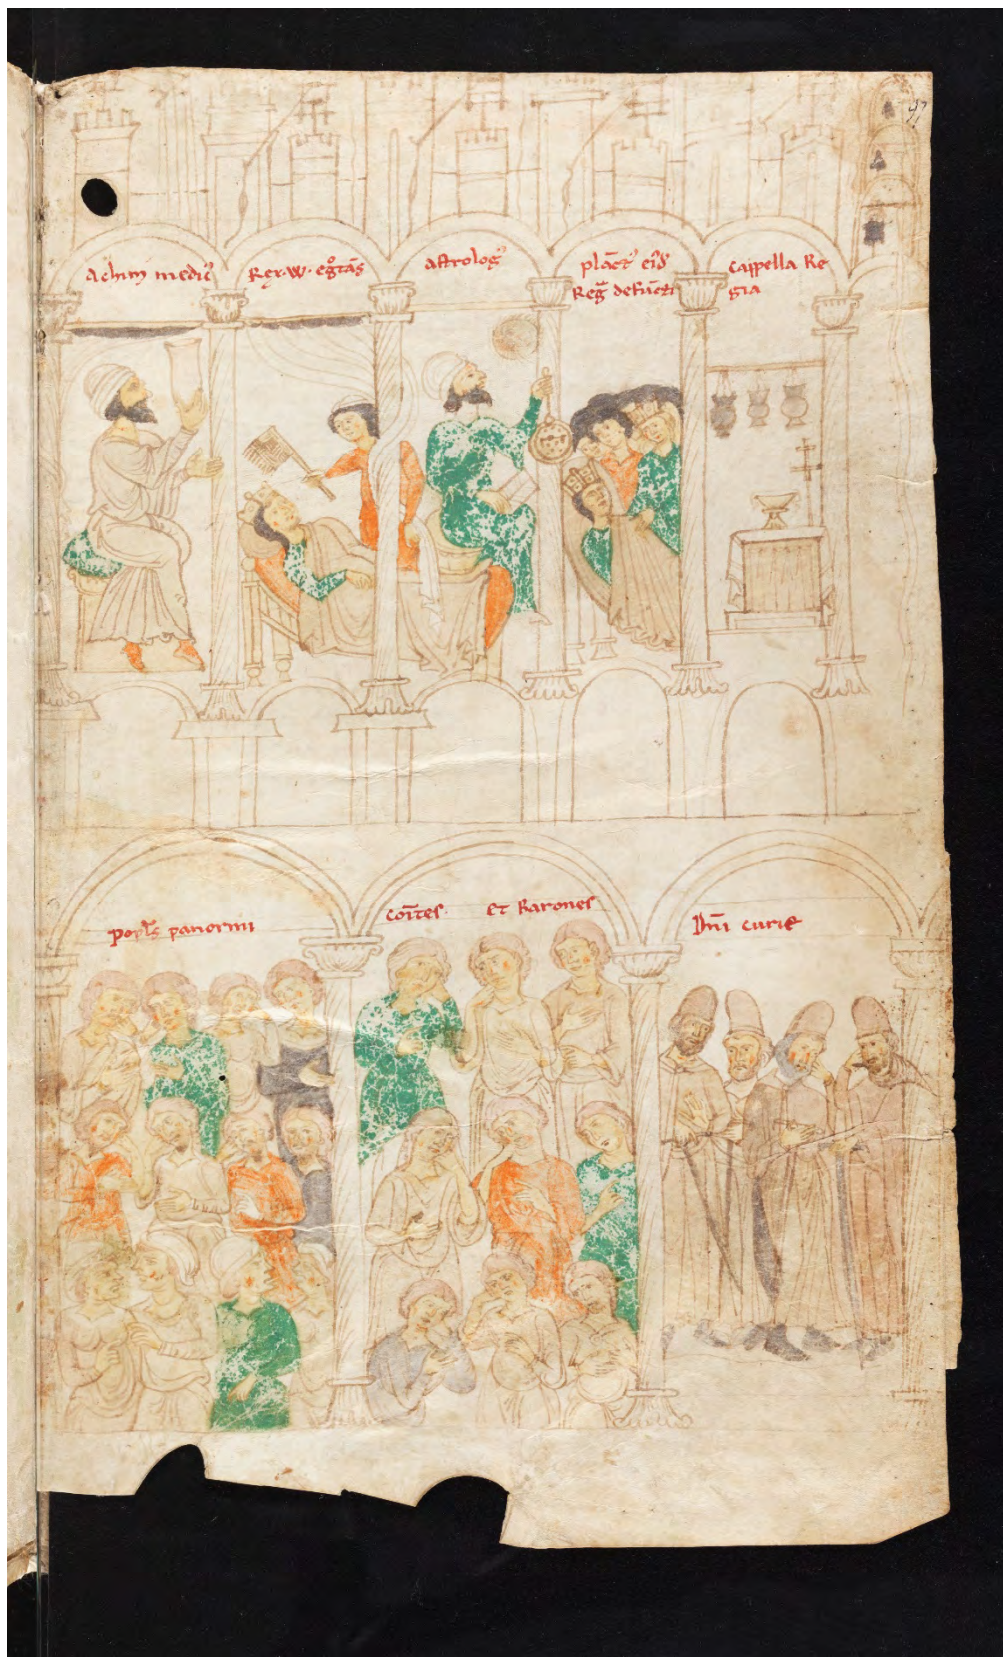 97
Achim medic⁹
Rex · W · eg̊tās
Astrolog⁹
plāct⁹ eı̄d
Reḡ defūcti
Cappella Re
gia
popl̄s panormi
Coı̄tes · et Barones
Dn̄i curie